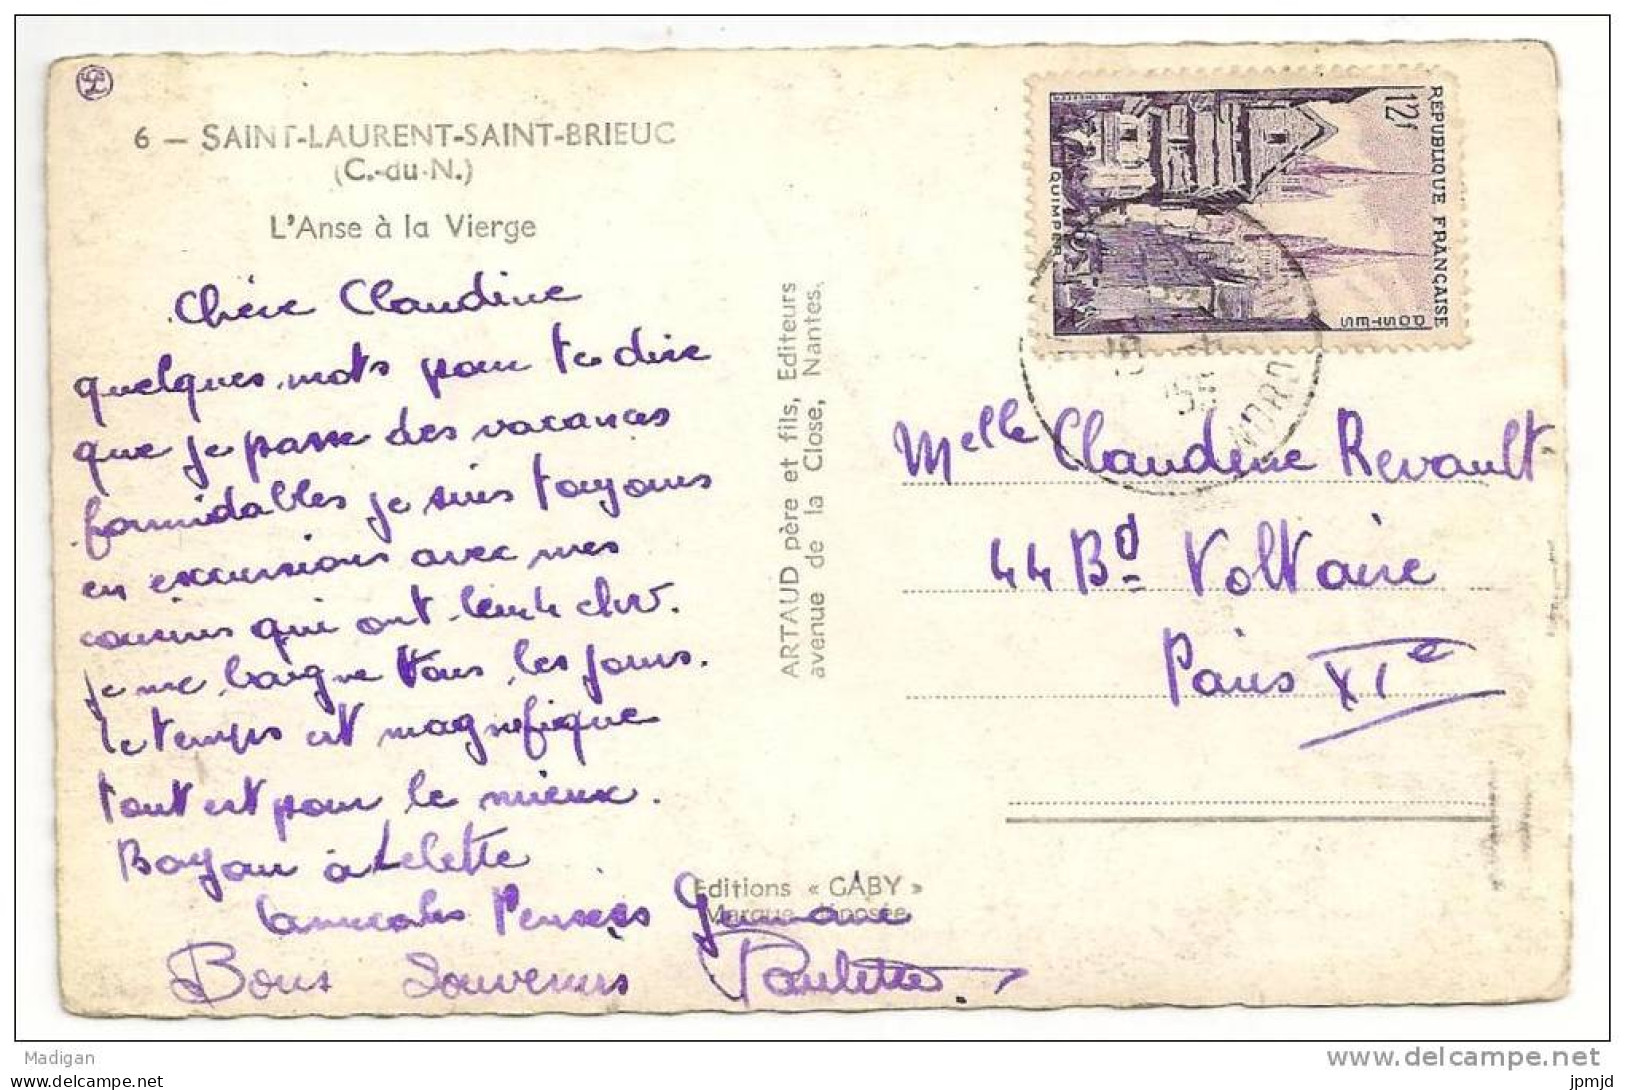 6 — SAINT-LAURENT-SAINT-BRIEUC
(C.-du-N.)
L'Anse à la Vierge
Chère Claudine
quelques mots pour te dire
que je passe des vacances
formidables je suis toujours
en excursions avec mes
cousins qui ont leur 4 chv.
je me baigne tous les jours.
le temps est magnifique
tout est pour le mieux.
à Lelette
amicales Pensées Germaine
Bons Souvenirs Paulette.
ARTAUD père et fils, Editeurs
avenue de la Close, Nantes.
Editions « GABY »
Marque déposée
REPUBLIQUE FRANÇAISE
12f
POSTES
QUIMPER
NORD
Melle Claudine Revault
44 Bd Voltaire
Paris XIe
Madigan
www.delcampe.net
jpmjd